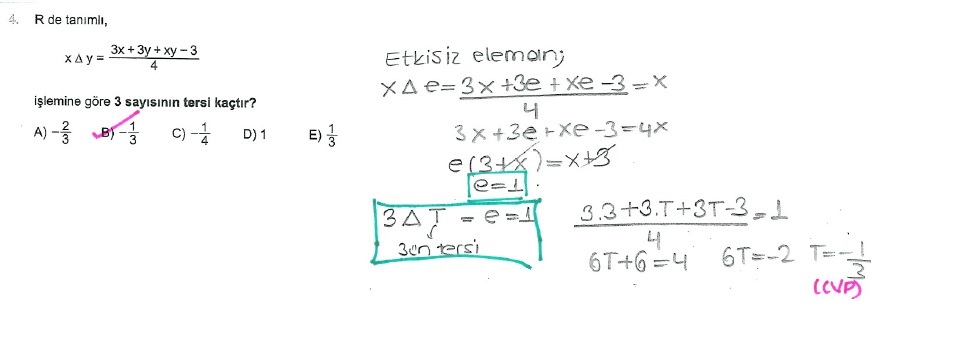 4. R de tanımlı,
x Δ y = (3x + 3y + xy – 3)/4
işlemine göre 3 sayısının tersi kaçtır?
A) –2/3 B) –1/3 C) –1/4 D) 1 E) 1/3
Etkisiz eleman;
x Δ e = (3x + 3e + xe – 3)/4 = x
3x + 3e + xe – 3 = 4x
e(3+x) = x+3
e = 1
3 Δ T = e = 1
3ün tersi
(3.3 + 3.T + 3T – 3)/4 = 1
6T + 6 = 4 6T = –2 T = –1/3
(CVP)